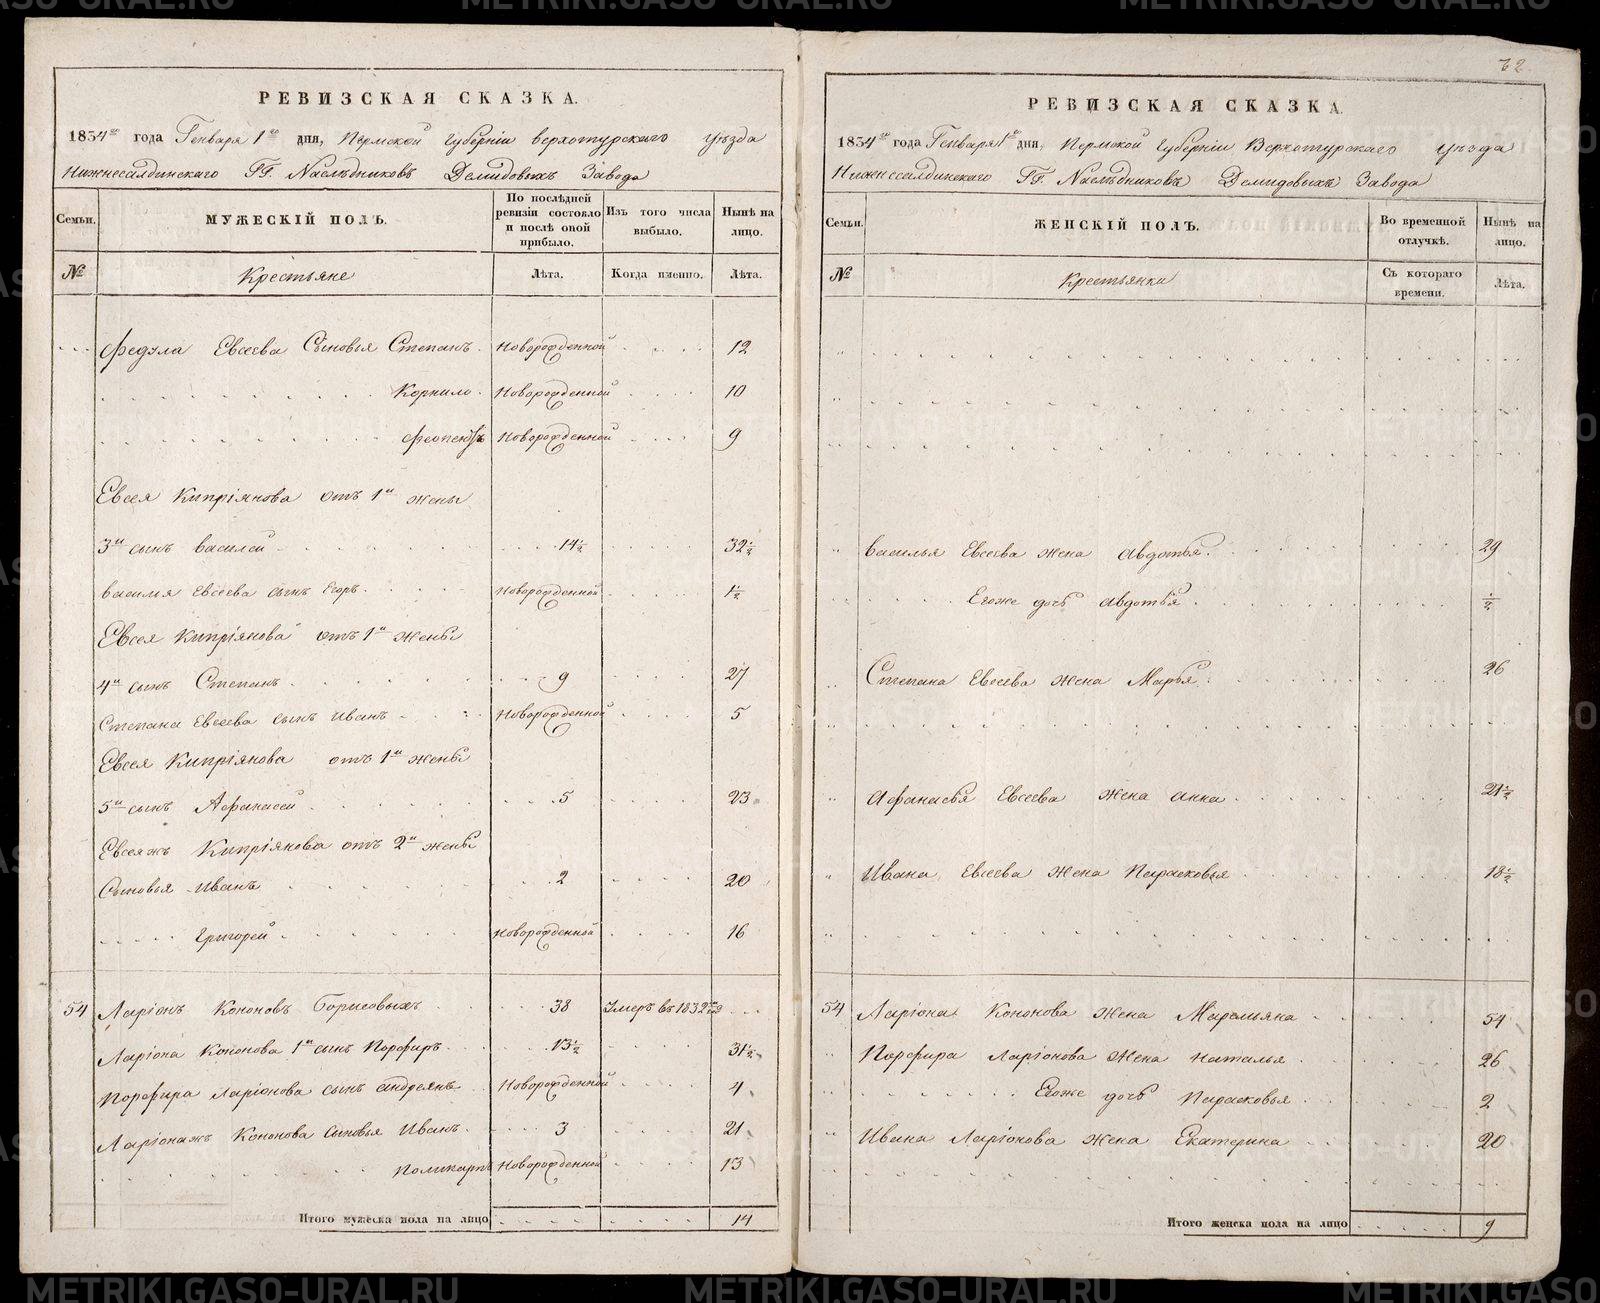 РЕВИЗСКАЯ СКАЗКА.
1834го года Генваря 1го дня, Пермской Губерніи Верхотурскаго уѣзда
Нижнесалдинскаго ГГ. Наслѣдниковъ Демидовыхъ Завода
Семьи.
МУЖЕСКІЙ ПОЛЪ.
По послѣдней ревизіи состояло и послѣ оной прибыло.
Изъ того числа выбыло.
Нынѣ на лицо.
№
Крестьяне
Лѣта.
Когда именно.
Лѣта.
Федула Евсеева Сыновья Степанъ Новорожденной 12
Корнило Новорожденной 10
Феопентъ Новорожденной 9
Евсея Кипріянова отъ 1й жены
3й сынъ Василей 14½ 32½
Василья Евсеева сынъ Егоръ Новорожденной 1½
Евсея Кипріянова отъ 1й жены
4й сынъ Степанъ 9 27
Степана Евсеева сынъ Иванъ Новорожденной 5
Евсея Кипріянова отъ 1й жены
5й сынъ Афанасей 5 23
Евсеяжъ Кипріянова отъ 2й жены
Сыновья Иванъ 2 20
Григорей Новорожденной 16
54 Ларіонъ Кононовъ Борисовыхъ 38 Умеръ въ 1832
Ларіона Кононова 1й сынъ Порфиръ 13½ 31½
Порфира Ларіонова сынъ Андреянъ Новорожденной 4
Ларіонажъ Кононова сыновья Иванъ 3 21
Поликарпъ Новорожденной 13
Итого мужеска пола на лицо 14
62
РЕВИЗСКАЯ СКАЗКА.
1834го года Генваря 1го дня, Пермской Губерніи Верхотурскаго уѣзда
Нижнесалдинскаго ГГ. Наслѣдниковъ Демидовыхъ Завода
Семьи.
ЖЕНСКІЙ ПОЛЪ.
Во временной отлучкѣ.
Нынѣ на лицо.
№
Крестьянки
Съ котораго времени.
Лѣта.
Василья Евсеева жена Авдотья 29
Егоже дочь Авдотья ½
Степана Евсеева жена Марья 26
Афанасья Евсеева жена Анна 21½
Ивана Евсеева жена Парасковья 18½
54 Ларіона Кононова жена Маремьяна 54
Порфира Ларіонова жена Наталья 26
Егоже дочь Парасковья 2
Ивана Ларіонова жена Екатерина 20
Итого женска пола на лицо 9
METRIKI.GASO-URAL.RU